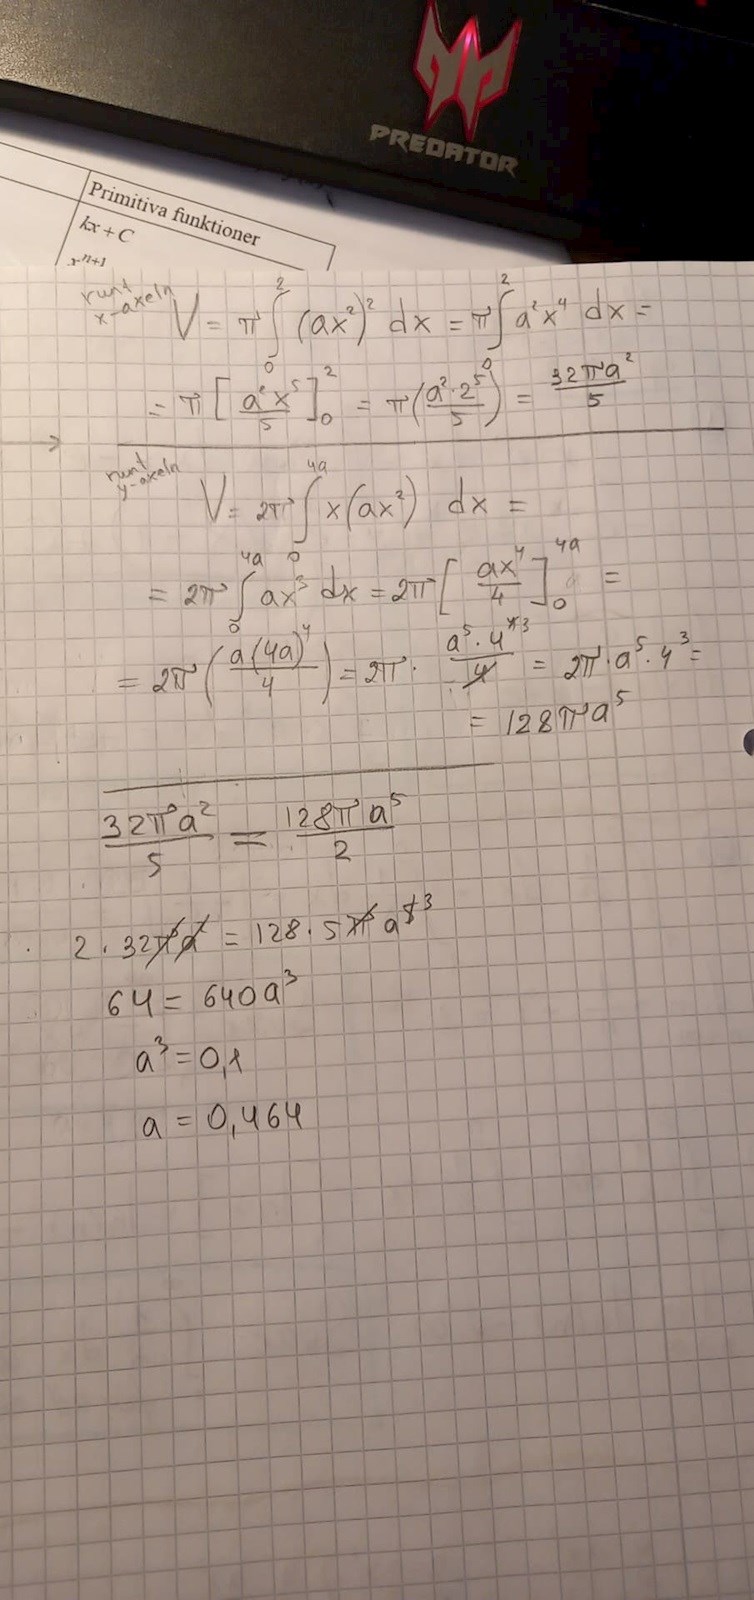 PREDATOR
Primitiva funktioner
kx + C
xⁿ⁺¹
runt x-axeln V = π ∫₀² (ax²)² dx = π ∫₀² a²x⁴ dx =
= π [a²x⁵/5]₀² = π (a²·2⁵/5) = 32πa²/5
runt y-axeln V = 2π ∫₀⁴ᵃ x(ax²) dx =
= 2π ∫₀⁴ᵃ ax³ dx = 2π [ax⁴/4]₀⁴ᵃ =
= 2π (a(4a)⁴/4) = 2π · a⁵·4³/4 = 2π·a⁵·4³ =
= 128πa⁵
32πa²/5 = 128πa⁵/2
2 · 32πa = 128 · 5πa³
64 = 640a³
a³ = 0,1
a = 0,464